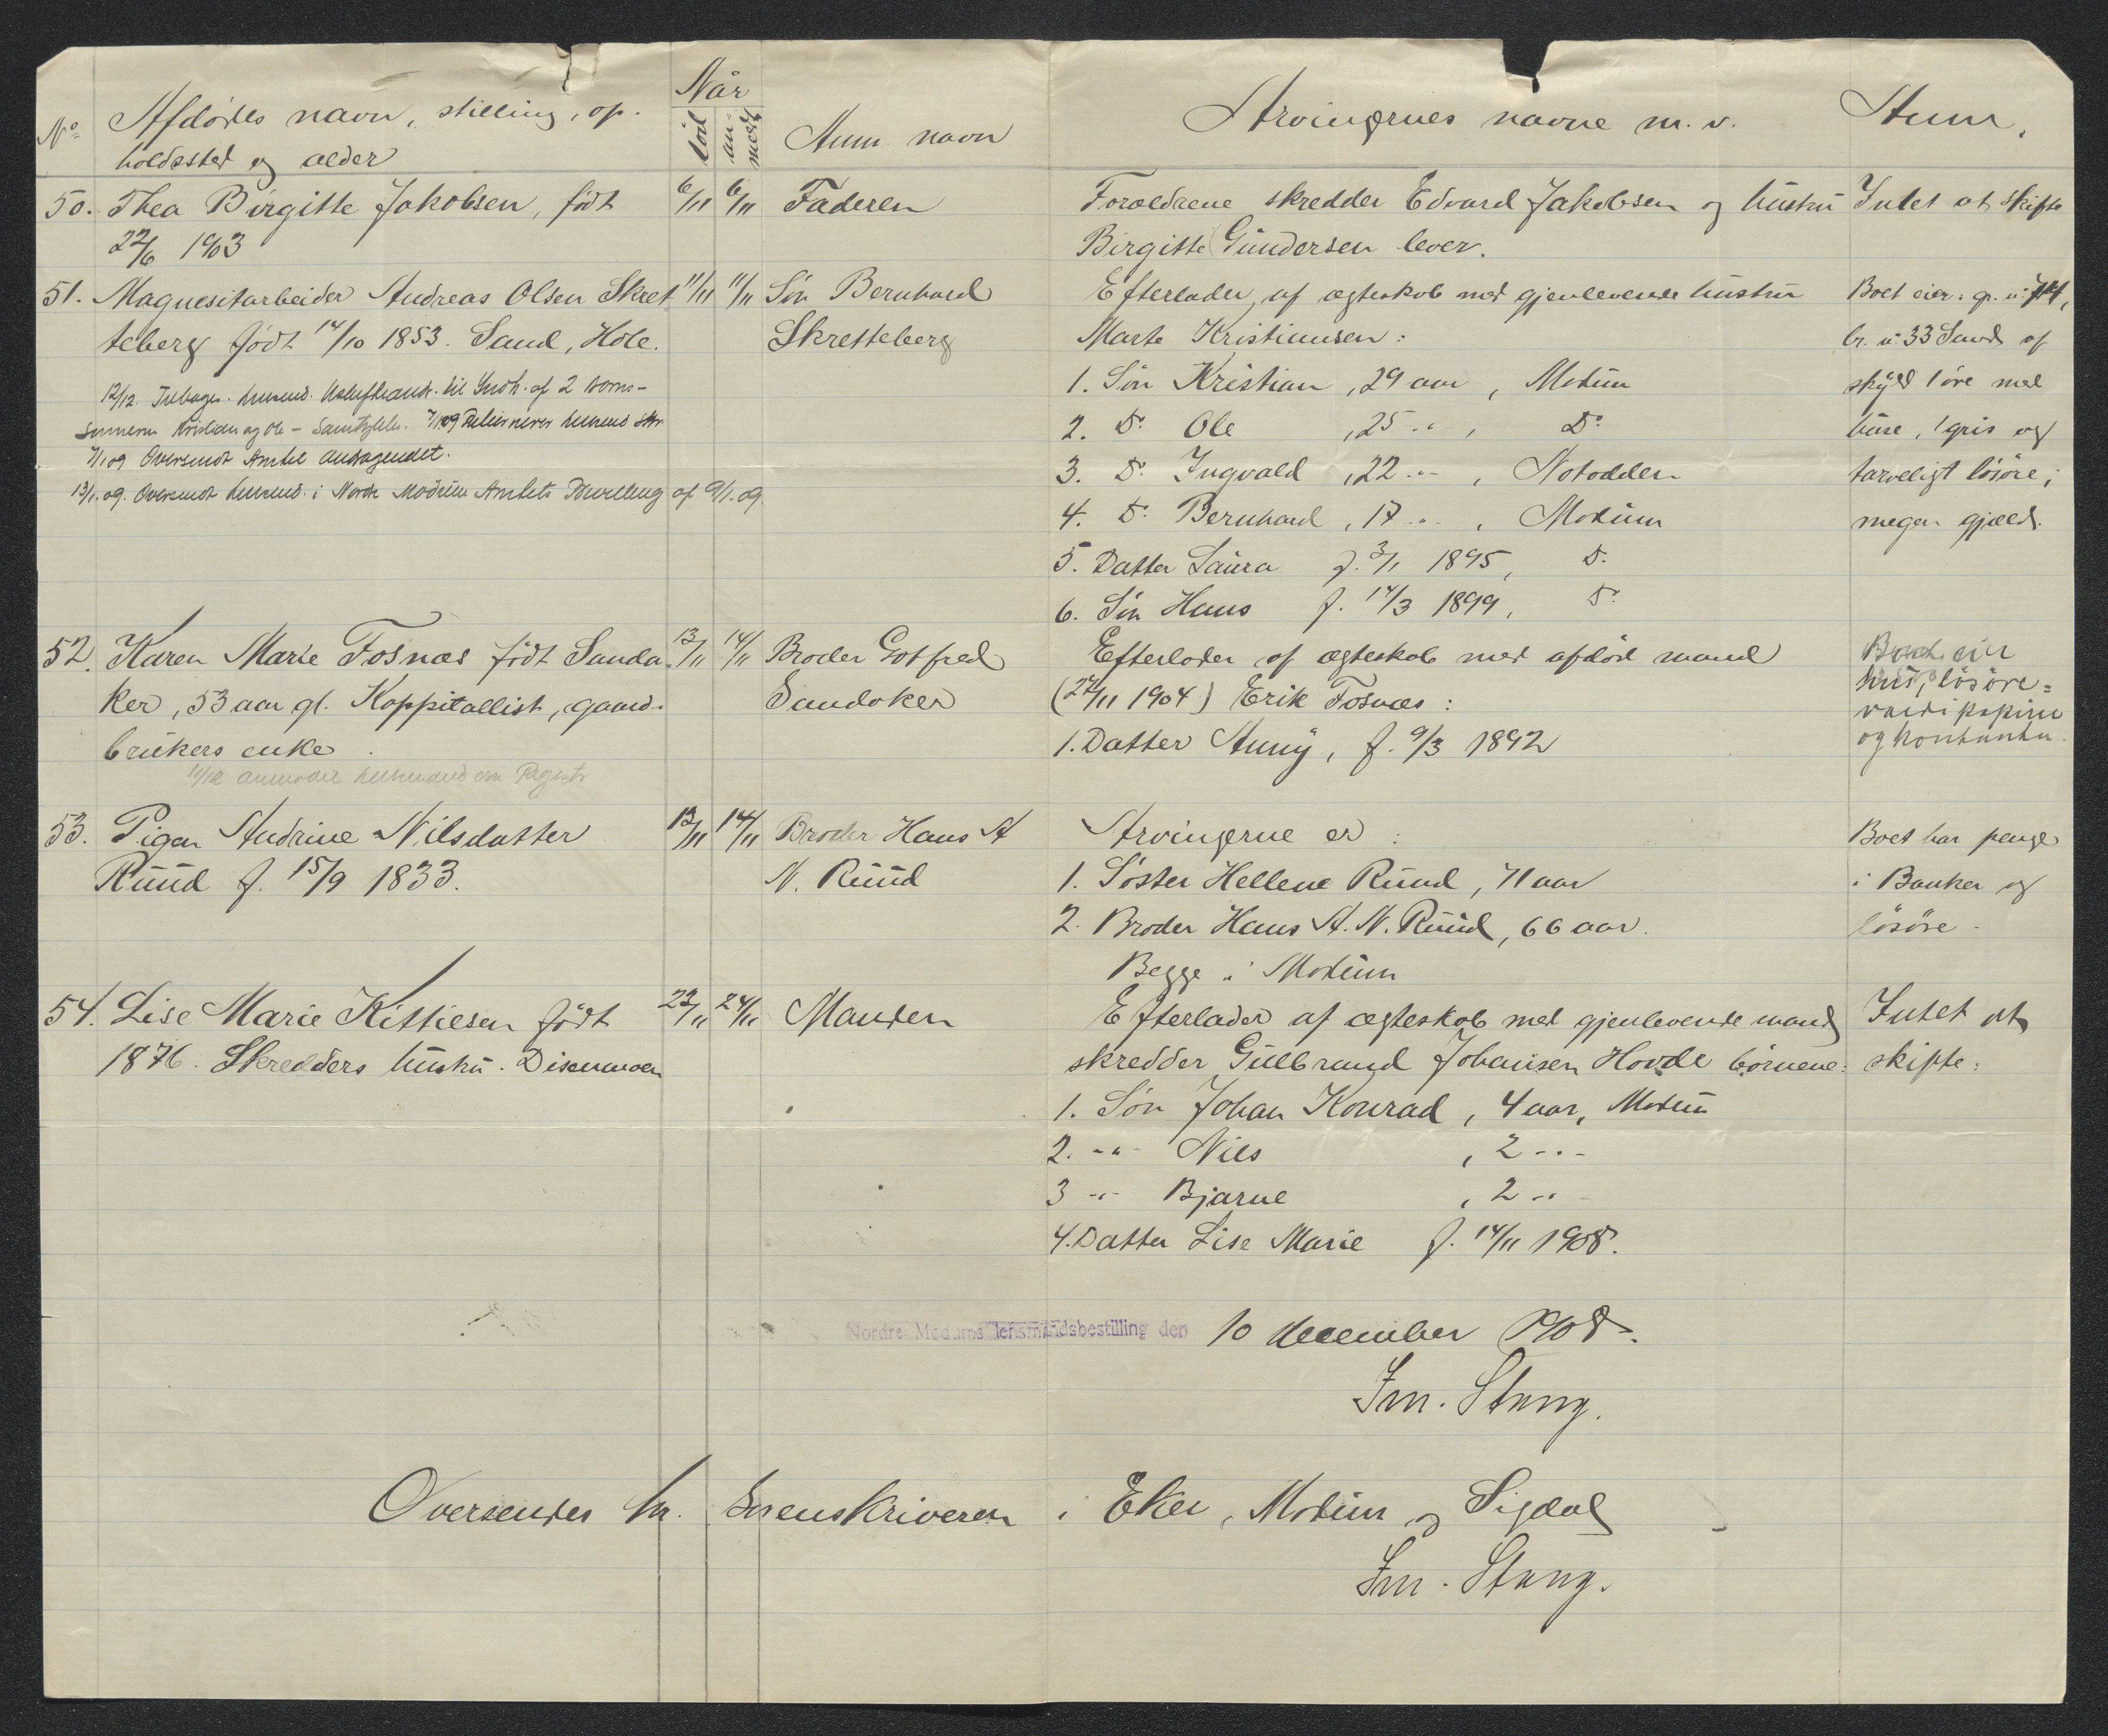 No Afdødes navn, stilling, op-
holdssted og alder
Når
død
an-
meldt
Anm. navn
Arvingernes navne m. v.
Anm.
50. Thea Birgitte Jakobsen, født
22/6 1903
6/11 6/11 Faderen
Forældrene skredder Edvard Jakobsen og hustru
Birgitte Gundersen lever.
Intet at skifte
51. Magnesitarbeider Andreas Olsen Skret-
teberg født 14/10 1853. Sand, Hole.
12/12. Tilbages. lensmd. til Indh. af 2 
Sønnerne Kristian og Ole - Samtykke. 7/1 09 lensmd
7/1 09 Oversendt Amtet andragendet.
13/1. 09. Oversendt lensmd. i Nordre Modum Amtets Bevilling af 9/1. 09.
11/11 11/11 Søn Bernhard
Skretteberg
Efterlader af ægteskab med gjenlevende hustru
Marte Kristiansen:
1. Søn Kristian, 29 aar, Modum
2. Do Ole, 25 -"-, Do
3. Do Ingvald, 22 -"-, Notodden
4. Do Bernhard, 17 -"-, Modum
5. Datter Laura f. 3/1 1895, Do
6. Søn Hans f. 14/3 1899, Do
Boet eier: gr. n
br. n 33 Sand af
skyld 1 øre med
huse, 1 gris og
tarveligt løsøre;
megen gjæld.
52. Karen Marie Fosnæs født Sanda-
ker, 53 aar gl. Kappitallist, gaard-
brukers enke.
11/12 anmodet lensmand om
13/11 14/11 Broder Gotfred
Sandaker
Efterlader af ægteskab med afdød mand
(27/11 1904) Erik Fosnæs:
1. Datter Anny, f. 9/3 1892
Boet eier
hus, løsøre=
værdipapirer
og kontanter.
53. Pigen Andrine Nilsdatter
Ruud f. 15/9 1833.
13/11 14/11 Broder Hans A
N. Ruud
Arvingerne er:
1. Søster Hellene Ruud, 71 aar
2. Broder Hans A. N. Ruud, 66 aar.
Begge i Modum
Boet har penge
i Banker og
løsøre.
54. Lise Marie Kittilsen født
1876. Skredders hustru. Disenmoen
23/11 24/11 Manden
Efterlader af ægteskab med gjenlevende mand
skredder Gulbrand Johansen Hovde børnene:
1. Søn Johan Konrad, 4 aar, Modum
2. -"- Nils, 2 -"-
3 -"- Bjarne, 2 -"-
4. Datter Lise Marie f. 14/11 1908.
Intet at
skifte.
Nordre Modums lensmandsbestilling den 10 december 1908.
Im. Stang.
Oversendes hr. Sorenskriveren i Eker, Modum og Sigdal
Im. Stang.